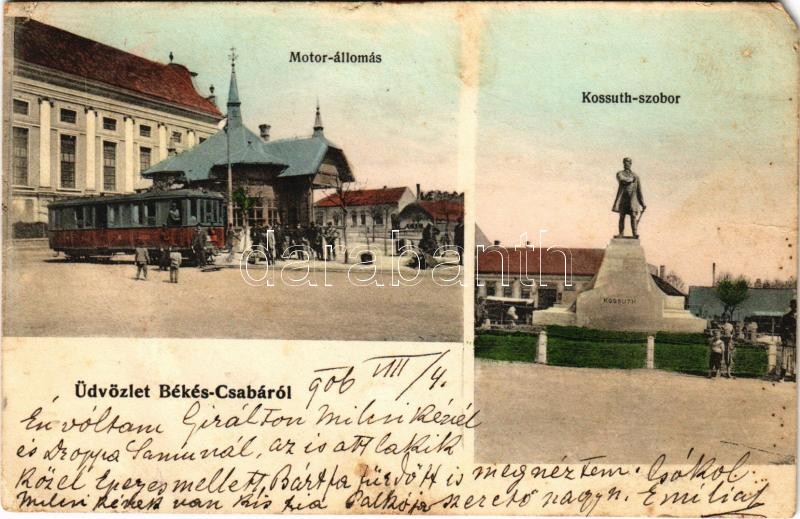 Motor-állomás
Kossuth-szobor
KOSSUTH
darabanth
Üdvözlet Békés-Csabáról
906 VIII/4.
Én vóltam Girálton Milcsikéziél
és Droppa Samunál, az is ott lakik
közel Eperjes mellett, Bártfa fürdőtt is megnéztem. Csókol
Milcsikének van kis fia Palkója szerető nagyn. Emília